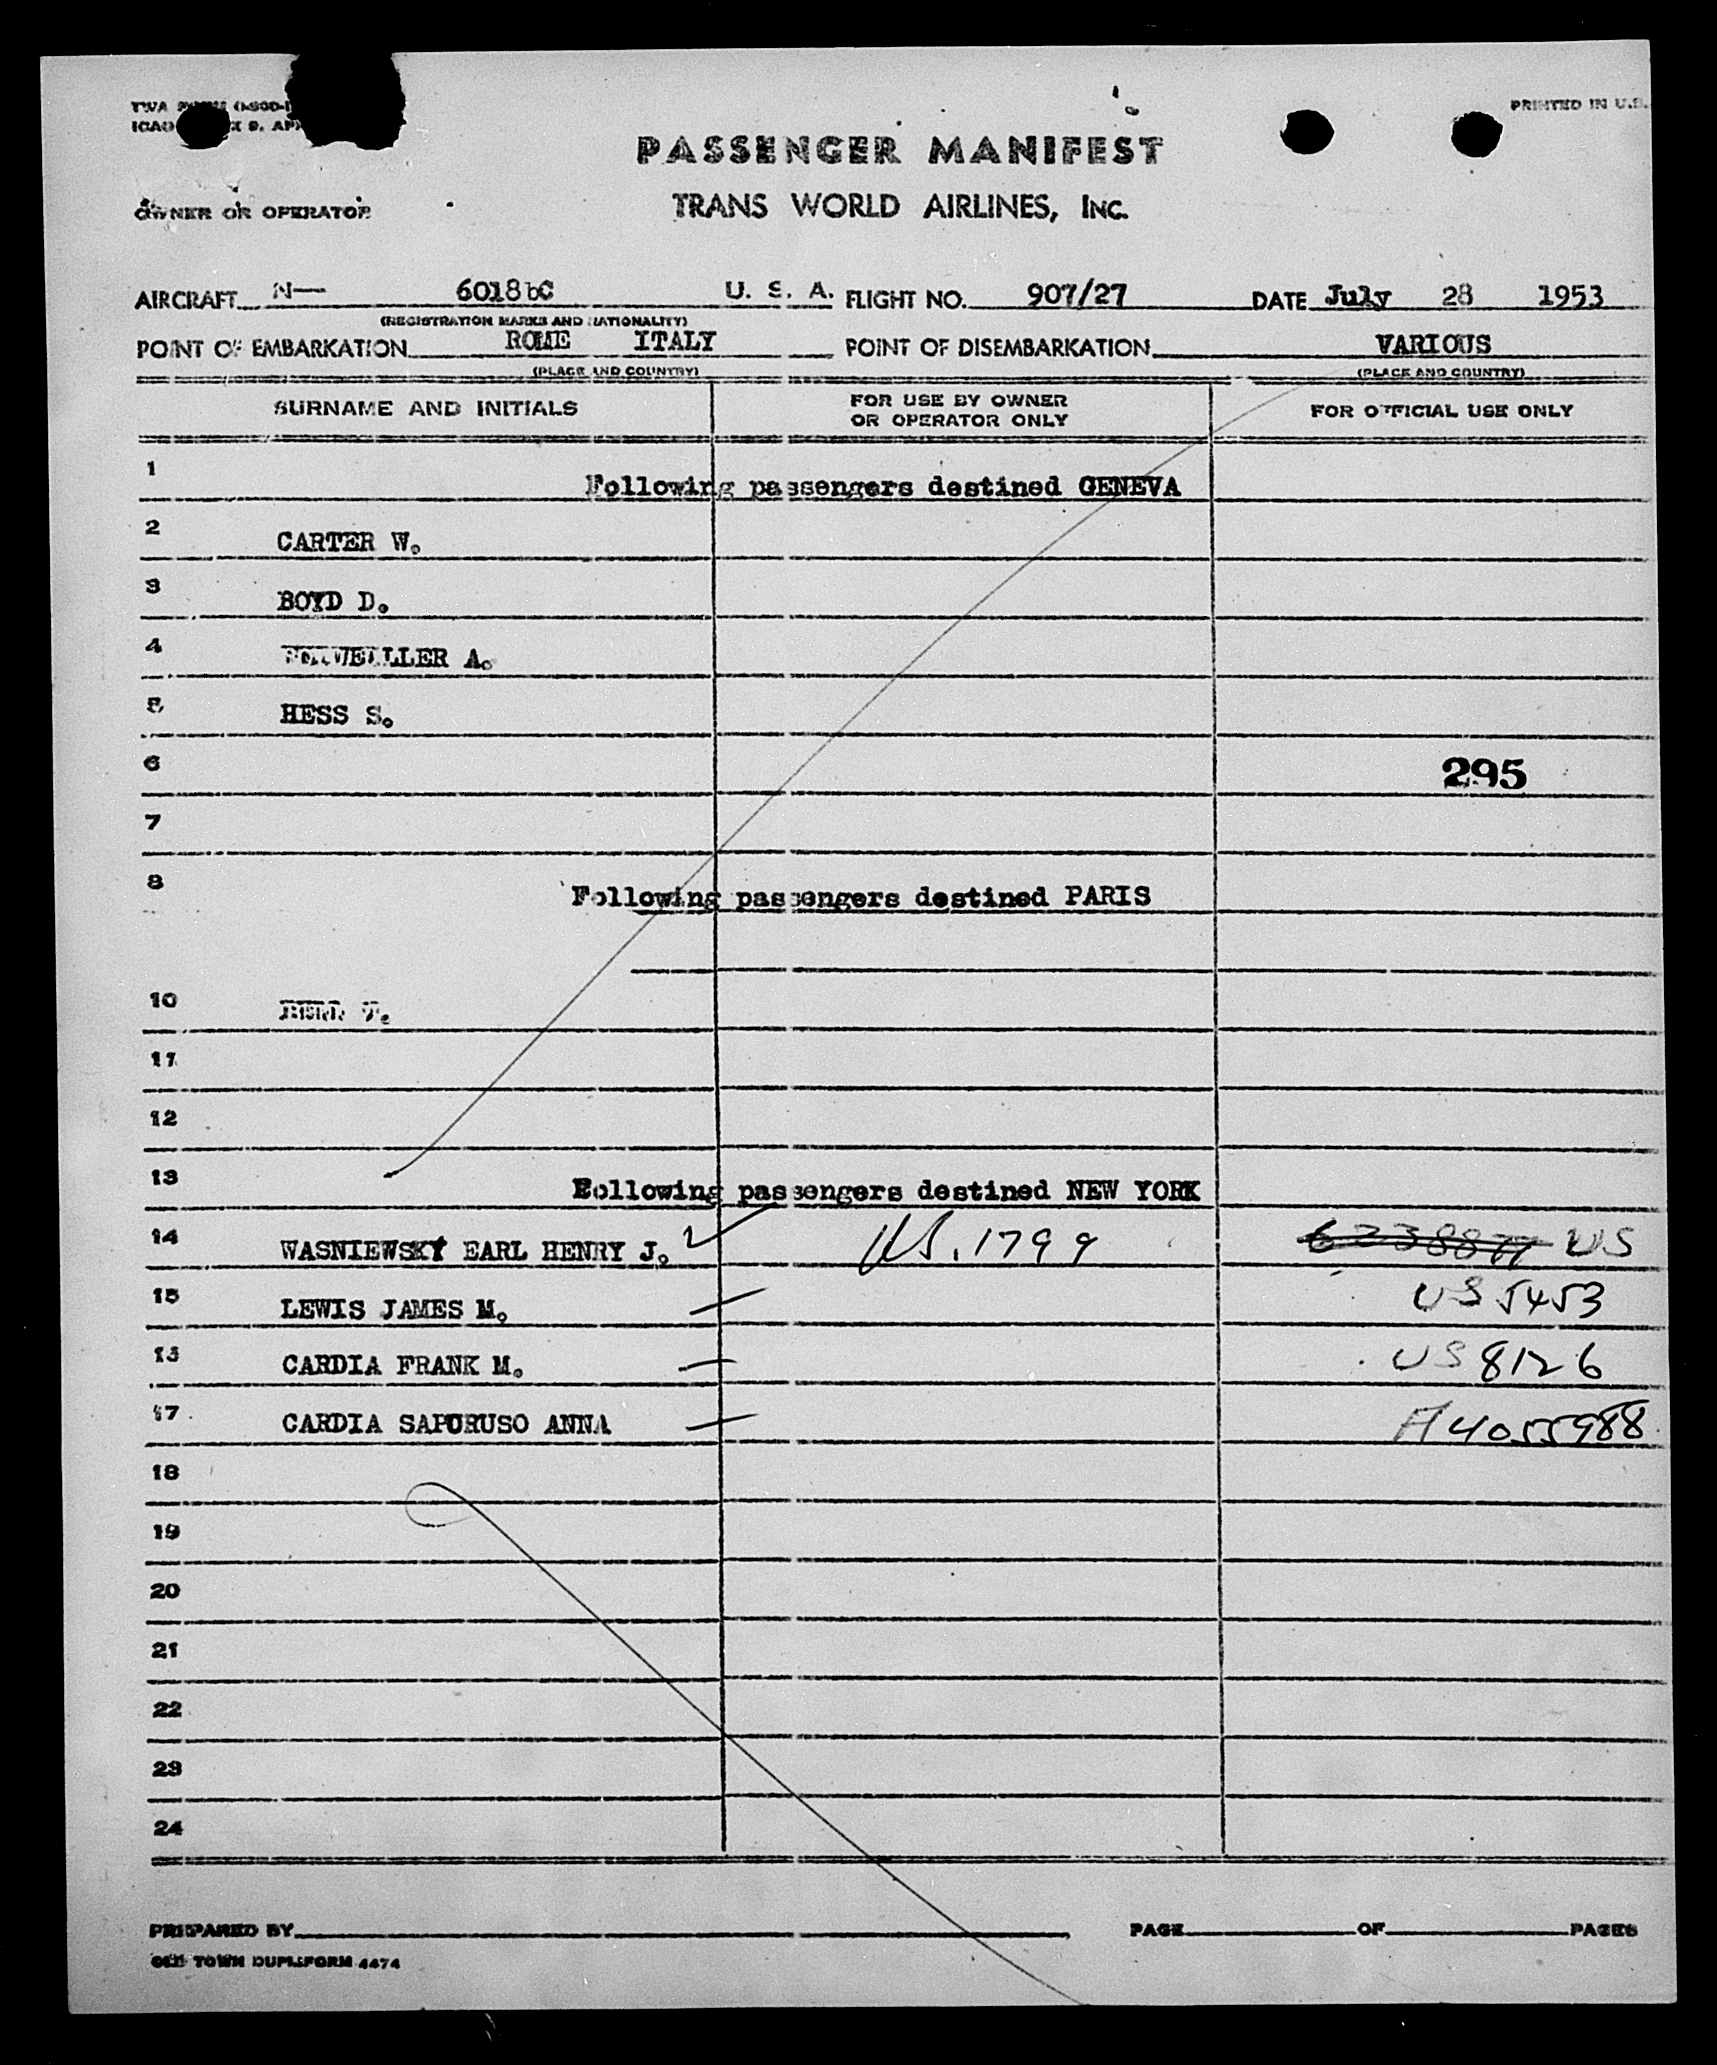 TWA
ICAO
PRINTED IN U.S.
PASSENGER MANIFEST
OWNER OR OPERATOR
TRANS WORLD AIRLINES, INC.
AIRCRAFT N— U. S. A. FLIGHT NO. 907/27 DATE July 28 1953
(REGISTRATION MARKS AND NATIONALITY)
POINT OF EMBARKATION ROME ITALY POINT OF DISEMBARKATION VARIOUS
(PLACE AND COUNTRY) (PLACE AND COUNTRY)
SURNAME AND INITIALS FOR USE BY OWNER OR OPERATOR ONLY FOR OFFICIAL USE ONLY
1 Following passengers destined GENEVA
2 CARTER W.
3 BOYD D.
4 A.
5 HESS S.
6 295
7
8 Following passengers destined PARIS
10
11
12
13 Following passengers destined NEW YORK
14 WASNIEWSKY EARL HENRY J. US. 1799 US
15 LEWIS JAMES M. US 5453
16 CARDIA FRANK M. US 8126
17 CARDIA SAPURUSO ANNA A4055988
18
19
20
21
22
23
24
PREPARED BY PAGE OF PAGES
OLD TOWN DUPLIFORM 4474